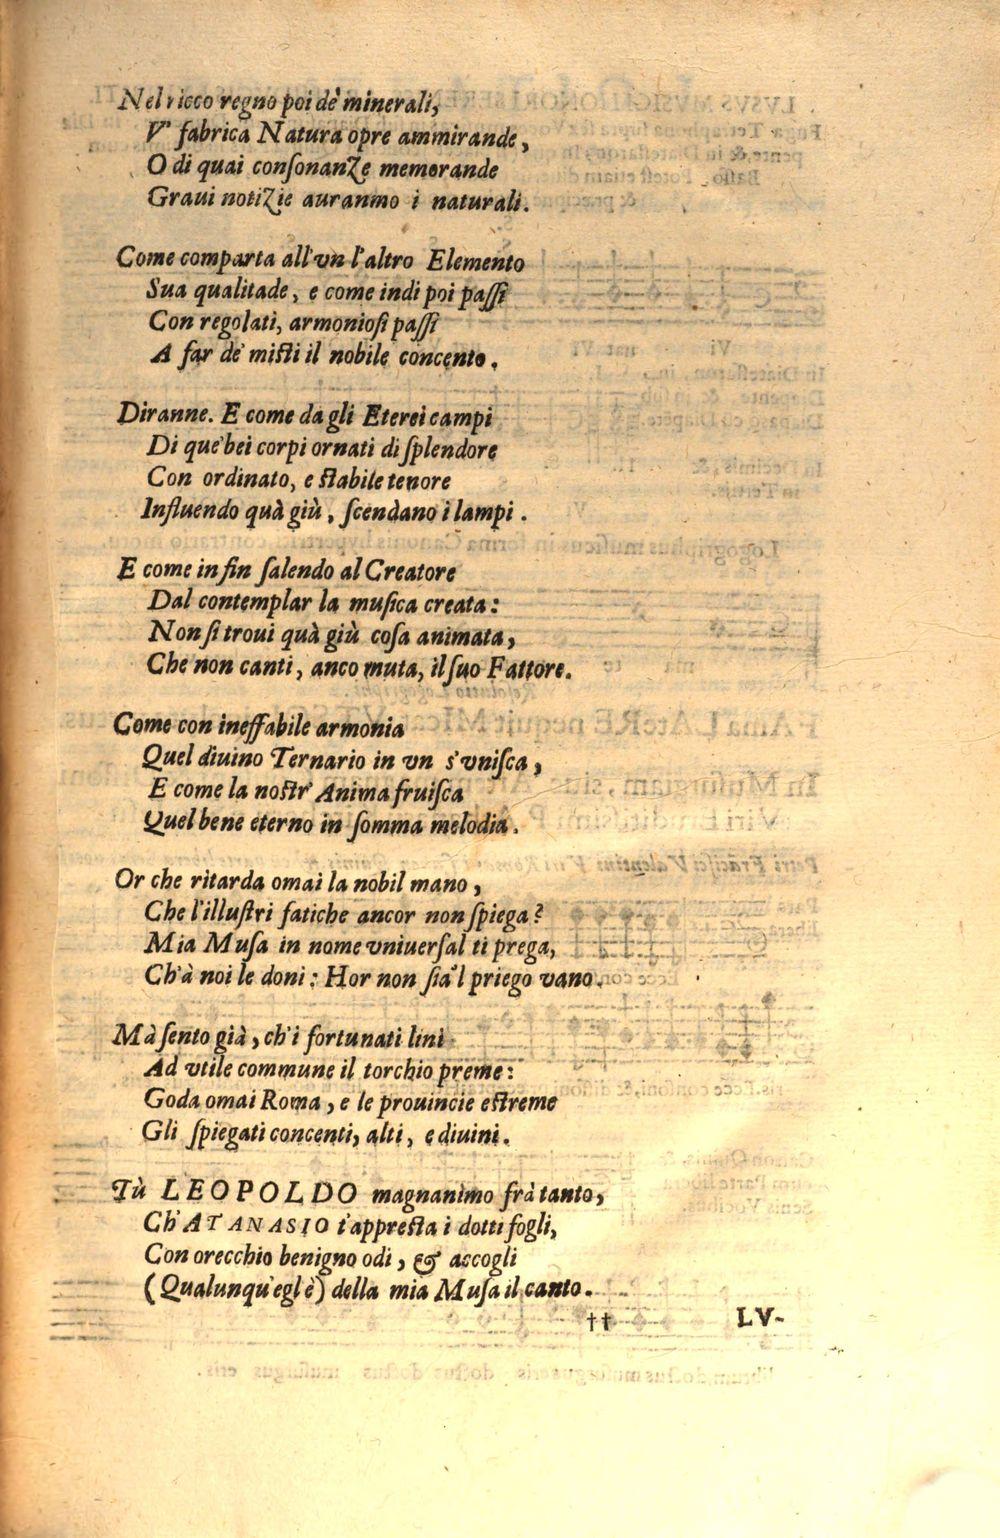 Nel ricco regno poi de' minerali,
V' fabrica Natura opre ammirande,
O di quai conſonanze memorande
Graui notizie auranno i naturali.
Come comparta all'vn l'altro Elemento
Sua qualitade, e come indi poi paſſi
Con regolati, armonioſi paſſi
A far de' miſti il nobile concento.
Diranne. E come da gli Eterei campi
Di que' bei corpi ornati di ſplendore
Con ordinato, e ſtabile tenore
Influendo quà giù, ſcendano i lampi.
E come in fin ſalendo al Creatore
Dal contemplar la muſica creata:
Non ſi troui quà giù coſa animata,
Che non canti, anco muta, il ſuo Fattore.
Come con ineffabile armonia
Quel diuino Ternario in vn s'vniſca,
E come la noſtr' Anima fruiſca
Quel bene eterno in ſomma melodia.
Or che ritarda omai la nobil mano,
Che l'illuſtri fatiche ancor non ſpiega?
Mia Muſa in nome vniuerſal ti prega,
Ch'à noi le doni: Hor non ſia'l priego vano.
Mà ſento già, ch'i fortunati lini
Ad vtile commune il torchio preme:
Goda omai Roma, e le prouincie eſtreme
Gli ſpiegati concenti, alti, e diuini.
Tù LEOPOLDO magnanimo frà tanto,
Ch'ATANASIO t'appreſta i dotti fogli,
Con orecchio benigno odi, & accogli
(Qualunqu'egl è) della mia Muſa il canto.
†† LV-